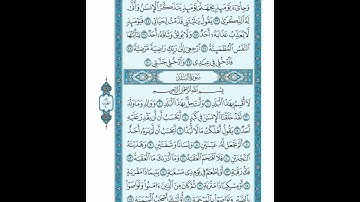 وَجِاْيٓءَ يَوْمَئِذٍۭ بِجَهَنَّمَ يَوْمَئِذٍ يَتَذَكَّرُ ٱلْإِنسَٰنُ وَأَنَّىٰ
لَهُ ٱلذِّكْرَىٰ ٢٣ يَقُولُ يَٰلَيْتَنِى قَدَّمْتُ لِحَيَاتِى ٢٤ فَيَوْمَئِذٍ
لَّا يُعَذِّبُ عَذَابَهُۥٓ أَحَدٌ ٢٥ وَلَا يُوثِقُ وَثَاقَهُۥٓ أَحَدٌ ٢٦ يَٰٓأَيَّتُهَا
ٱلنَّفْسُ ٱلْمُطْمَئِنَّةُ ٢٧ ٱرْجِعِىٓ إِلَىٰ رَبِّكِ رَاضِيَةً مَّرْضِيَّةً ٢٨
فَٱدْخُلِى فِى عِبَٰدِى ٢٩ وَٱدْخُلِى جَنَّتِى ٣٠
سُورَةُ الْبَلَدِ
بِسْمِ ٱللَّهِ ٱلرَّحْمَٰنِ ٱلرَّحِيمِ
لَآ أُقْسِمُ بِهَٰذَا ٱلْبَلَدِ ١ وَأَنتَ حِلٌّۢ بِهَٰذَا ٱلْبَلَدِ ٢ وَوَالِدٍ وَمَا وَلَدَ ٣
لَقَدْ خَلَقْنَا ٱلْإِنسَٰنَ فِى كَبَدٍ ٤ أَيَحْسَبُ أَن لَّن يَقْدِرَ عَلَيْهِ
أَحَدٌ ٥ يَقُولُ أَهْلَكْتُ مَالًا لُّبَدًا ٦ أَيَحْسَبُ أَن لَّمْ يَرَهُۥٓ أَحَدٌ ٧
أَلَمْ نَجْعَل لَّهُۥ عَيْنَيْنِ ٨ وَلِسَانًا وَشَفَتَيْنِ ٩ وَهَدَيْنَٰهُ
ٱلنَّجْدَيْنِ ١٠ فَلَا ٱقْتَحَمَ ٱلْعَقَبَةَ ١١ وَمَآ أَدْرَىٰكَ مَا ٱلْعَقَبَةُ ١٢
فَكُّ رَقَبَةٍ ١٣ أَوْ إِطْعَٰمٌ فِى يَوْمٍ ذِى مَسْغَبَةٍ ١٤ يَتِيمًا ذَا مَقْرَبَةٍ ١٥
أَوْ مِسْكِينًا ذَا مَتْرَبَةٍ ١٦ ثُمَّ كَانَ مِنَ ٱلَّذِينَ ءَامَنُوا۟ وَتَوَاصَوْا۟
بِٱلصَّبْرِ وَتَوَاصَوْا۟ بِٱلْمَرْحَمَةِ ١٧ أُو۟لَٰٓئِكَ أَصْحَٰبُ ٱلْمَيْمَنَةِ ١٨